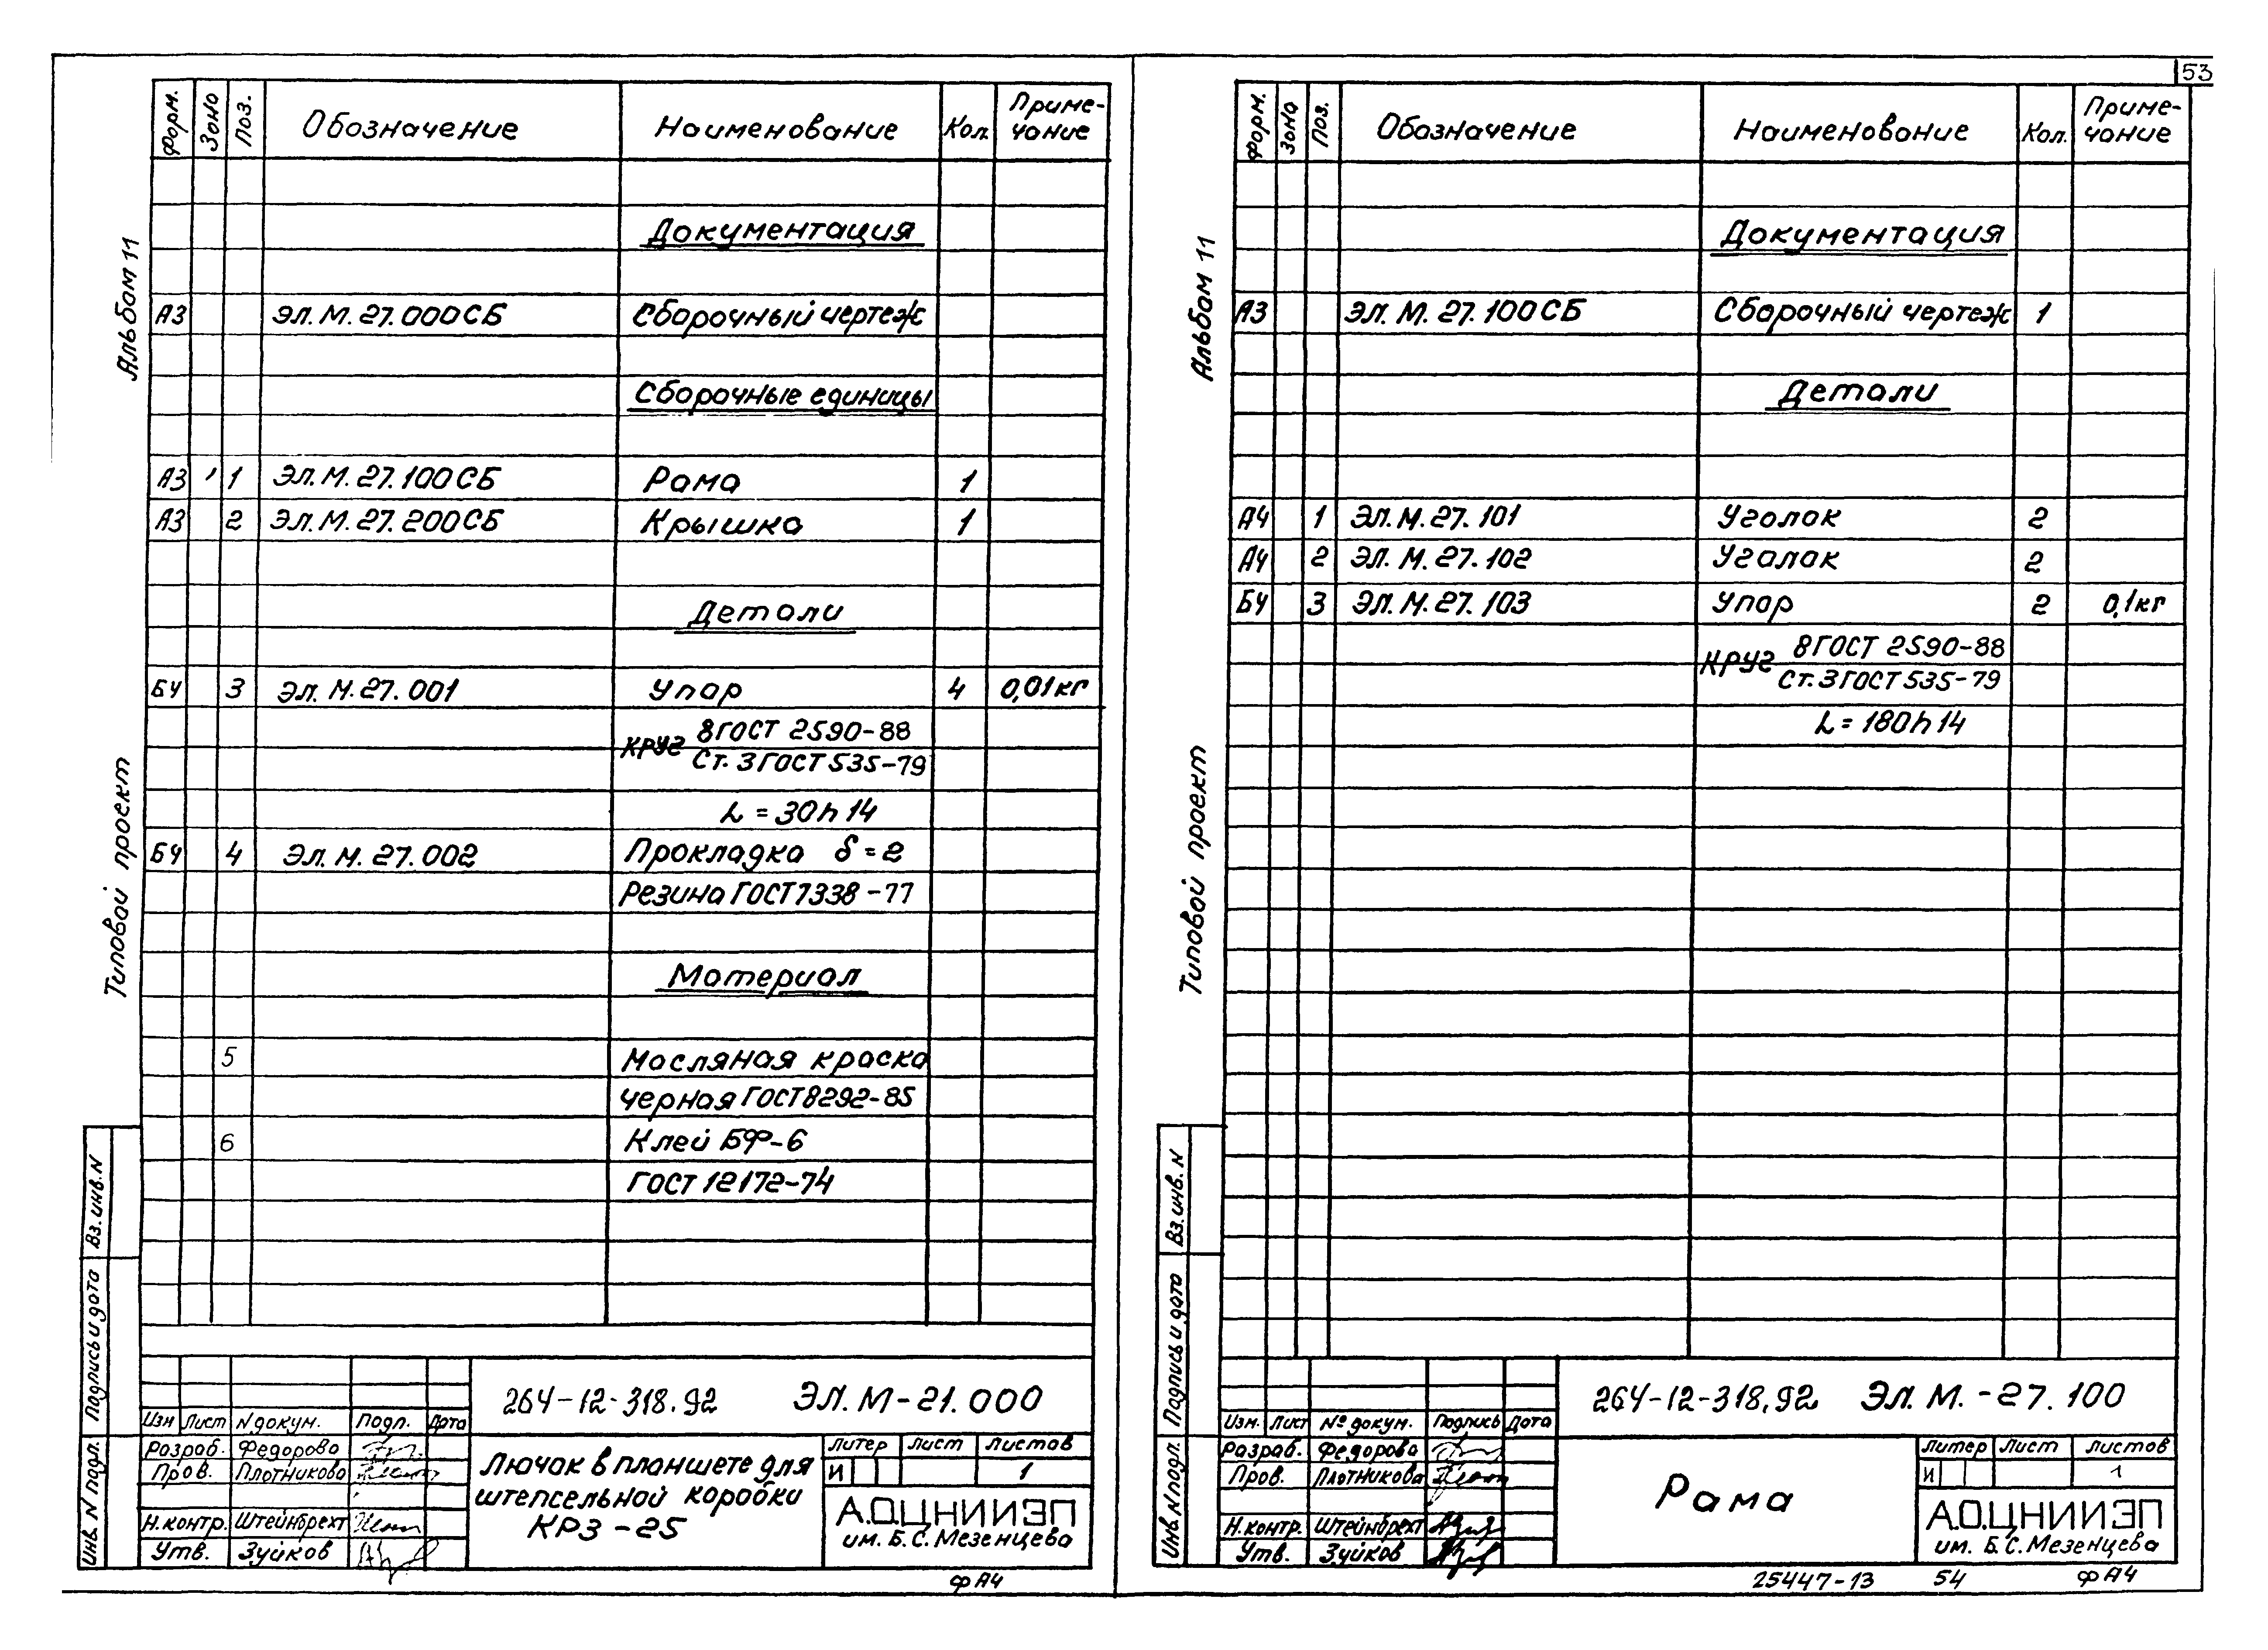 53
Альбом 11
Типовой проект
Форм.
Зона
Поз.
Обозначение
Наименование
Кол.
Приме-
чание
Документация
А3 ЭЛ.М.27.000СБ Сборочный чертеж
Сборочные единицы
А3 1 ЭЛ.М.27.100СБ Рама 1
А3 2 ЭЛ.М.27.200СБ Крышка 1
Детали
БЧ 3 ЭЛ.М.27.001 Упор 4 0,01кг
Круг 8 ГОСТ 2590-88
Ст.3 ГОСТ 535-79
L = 30h14
БЧ 4 ЭЛ.М.27.002 Прокладка δ=2
Резина ГОСТ 7338-77
Материал
5 Масляная краска
черная ГОСТ 8292-85
6 Клей БФ-6
ГОСТ 12172-74
Вз.инв.N
Подпись и дата
Инв.N подл.
264-12-318.92 ЭЛ.М-21.000
Изм Лист N докум. Подп. Дата
Разраб. Федорова
Пров. Плотникова
Н.контр. Штейнбрехт
Утв. Зуйков
Лючок в планшете для
штепсельной коробки
КРЗ-25
Литер Лист Листов
И 1
А.О.ЦНИИЭП
им. Б.С.Мезенцева
ФА4
Альбом 11
Типовой проект
Форм.
Зона
Поз.
Обозначение
Наименование
Кол.
Приме-
чание
Документация
А3 ЭЛ.М.27.100СБ Сборочный чертеж 1
Детали
А4 1 ЭЛ.М.27.101 Уголок 2
А4 2 ЭЛ.М.27.102 Уголок 2
БЧ 3 ЭЛ.М.27.103 Упор 2 0,1кг
Круг 8 ГОСТ 2590-88
Ст.3 ГОСТ 535-79
L = 180h14
Вз.инв.N
Подпись и дата
Инв.N подл.
264-12-318.92 ЭЛ.М.-27.100
Изм. Лист № докум. Подпись Дата
Разраб. Федорова
Пров. Плотникова
Н.контр. Штейнбрехт
Утв. Зуйков
Рама
Литер Лист Листов
И 1
А.О.ЦНИИЭП
им. Б.С.Мезенцева
25447-13 54 ФА4